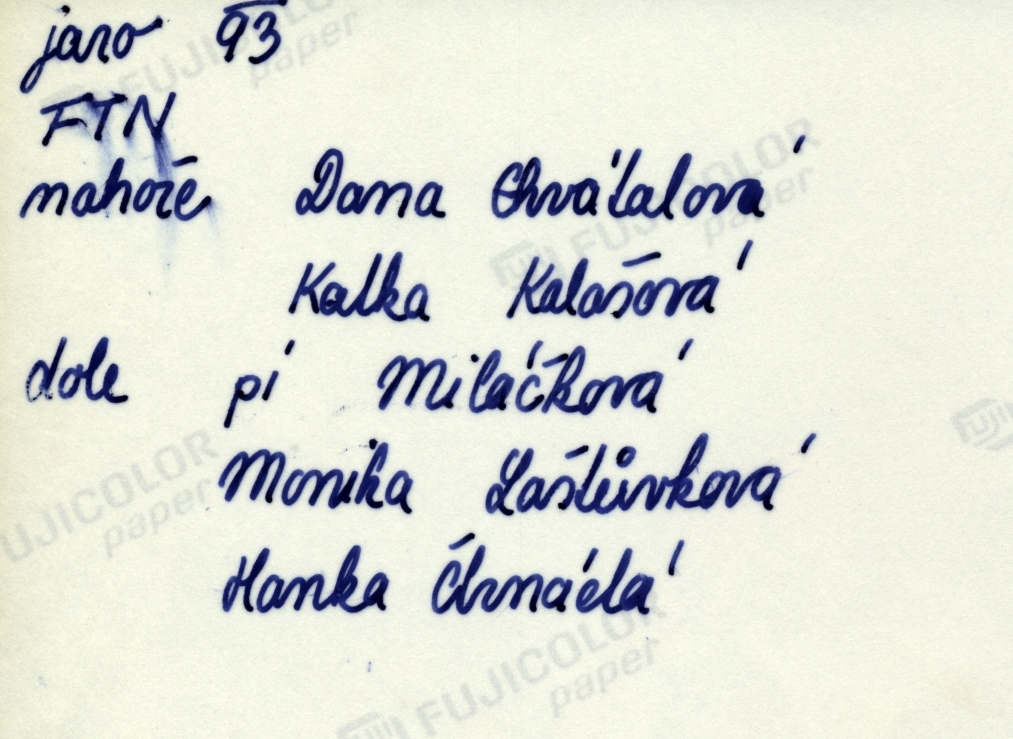 jaro 93
FTN
nahoře Dana Chvátalová
Katka Kalašová
dole pí Miláčková
Monika Laštůvková
Hanka
FUJICOLOR paper
FUJICOLOR paper
FUJICOLOR paper
FUJICOLOR paper
FUJI